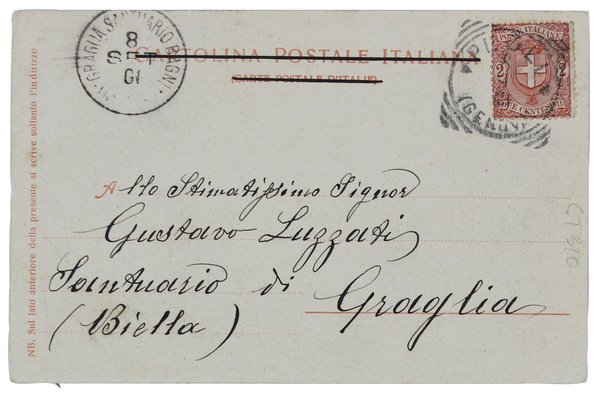 GRAGLIA SANTUARIO BAGNI
8
SET
01
CARTOLINA POSTALE ITALIANA
(CARTE POSTALE D'ITALIE)
POSTE ITALIANE
2
(GENOVA)
Allo Stimatissimo Signor
Gustavo Luzzati
Santuario di Graglia
(Biella)
NB. Sul lato anteriore della presente si scrive soltanto l'indirizzo